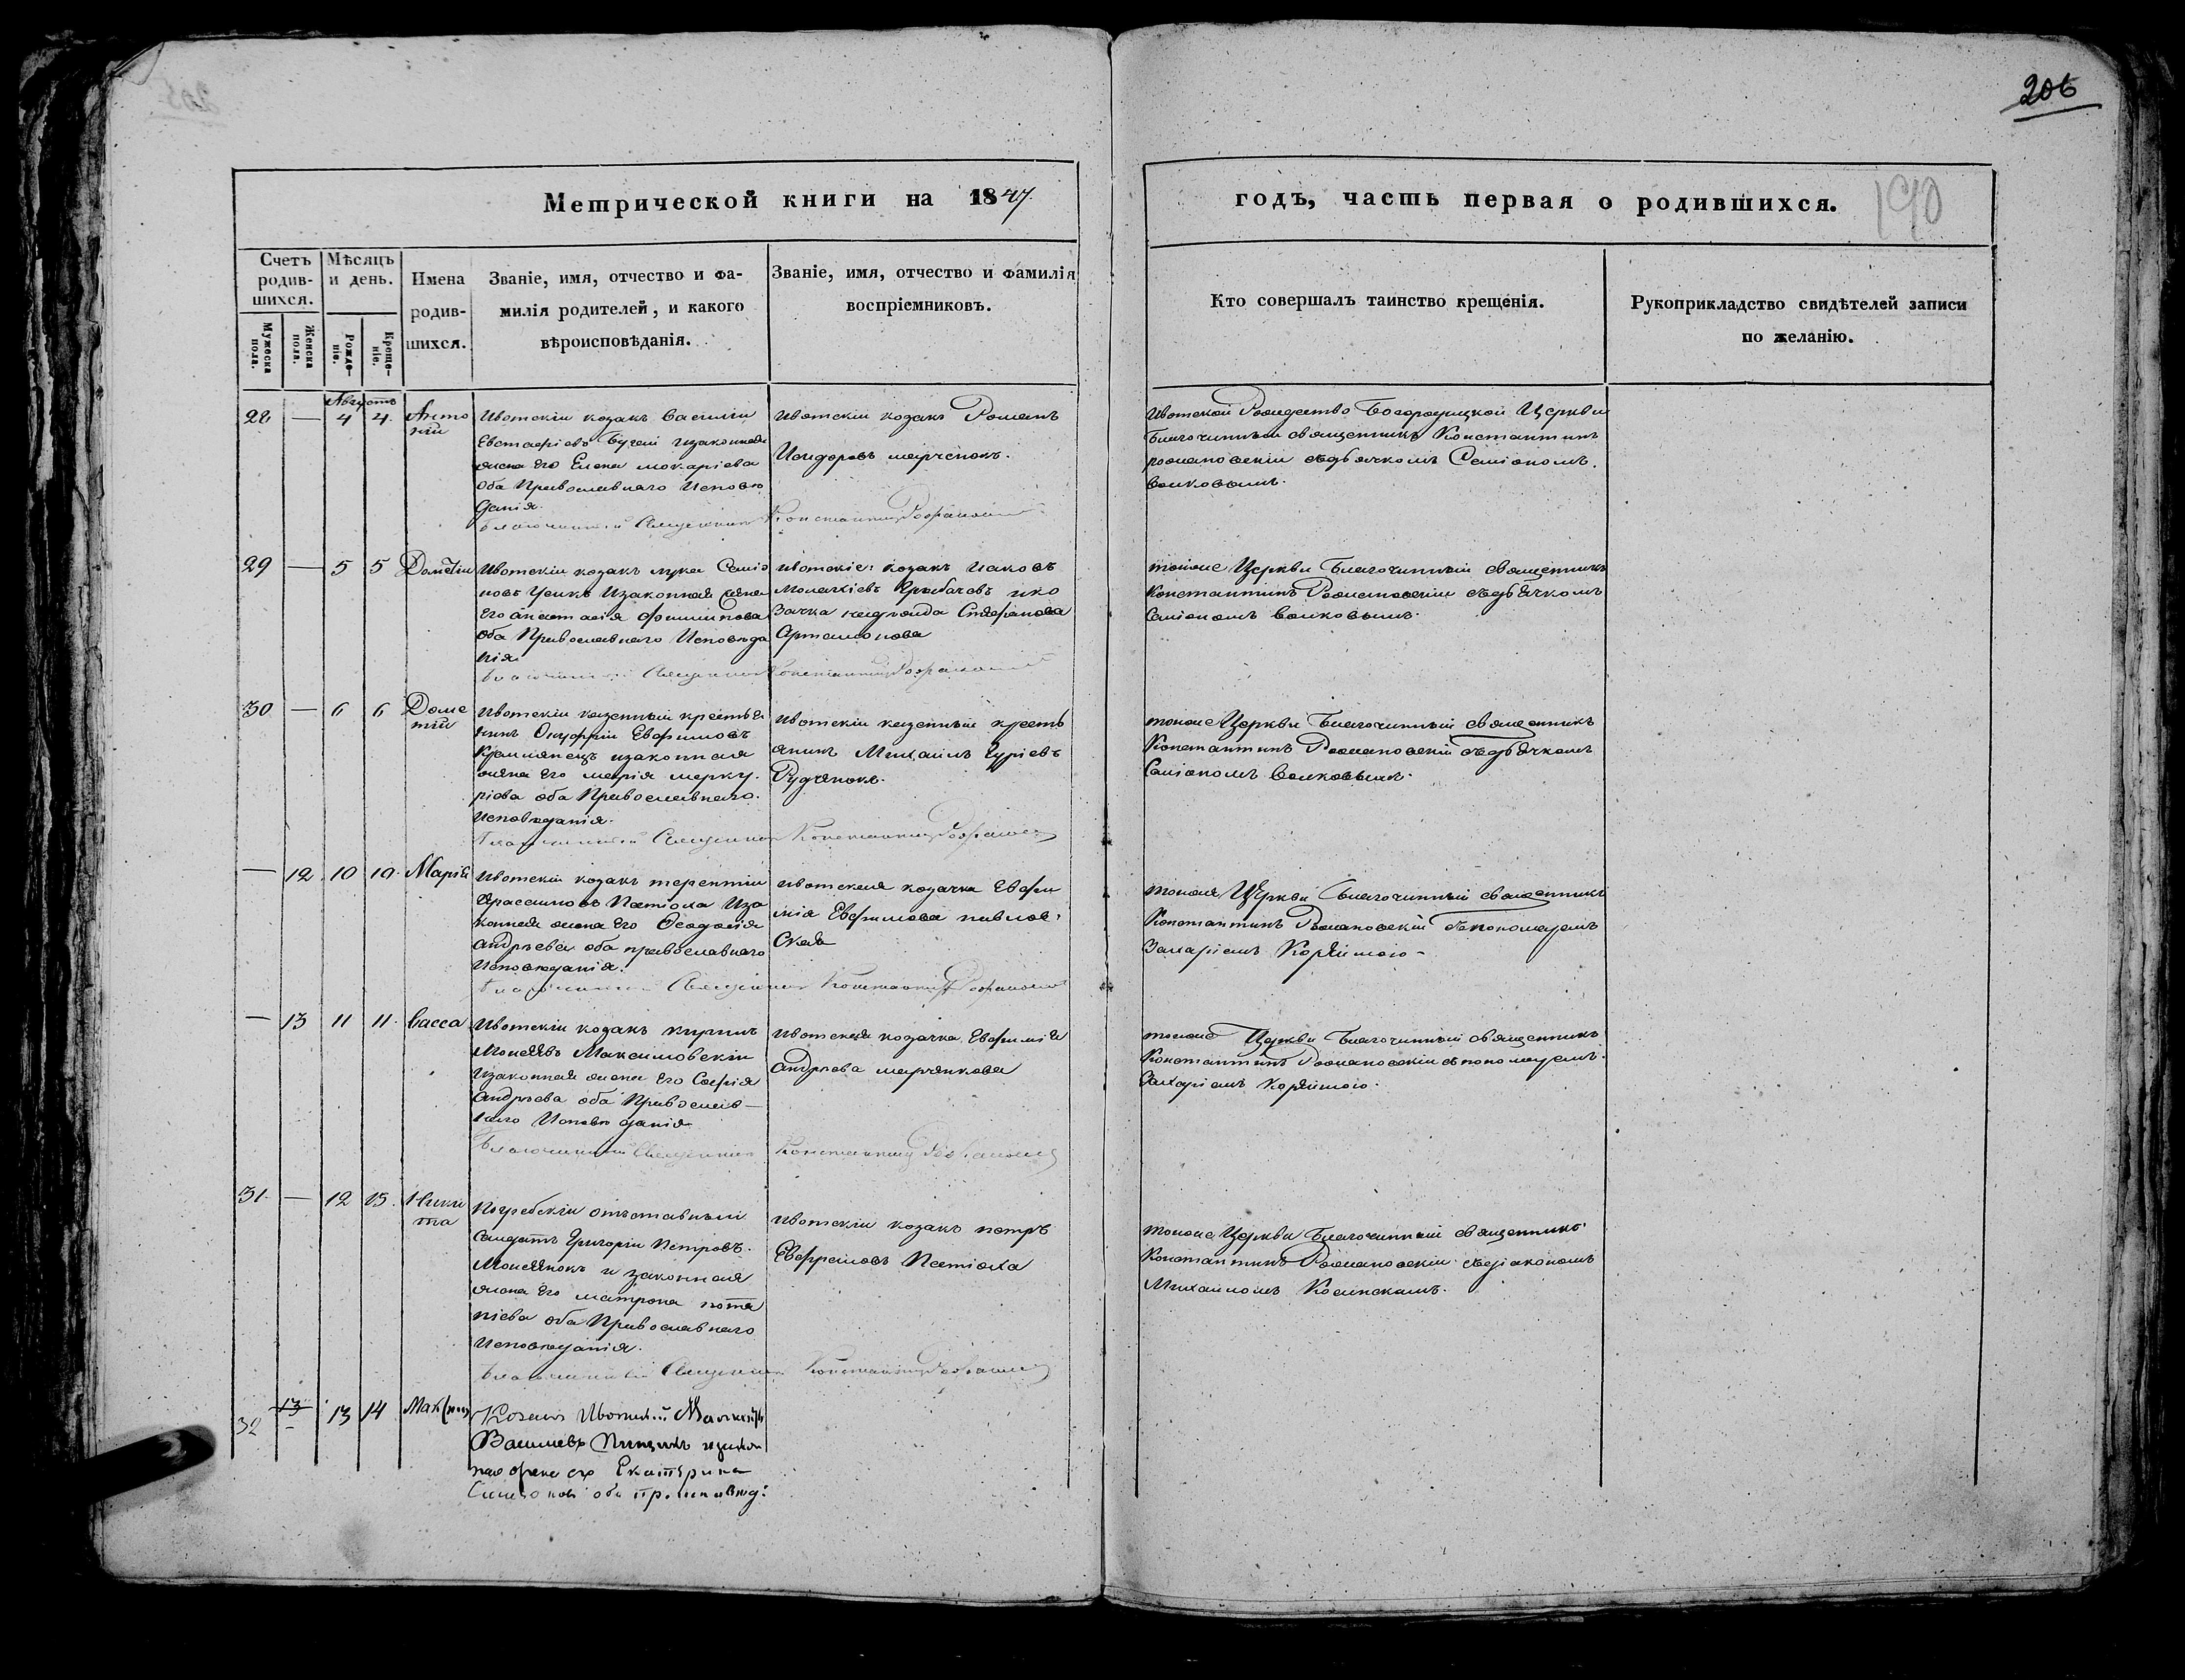 206
Метрической книги на 1847
годъ, часть первая о родившихся.
190
Счетъ родив-шихся.
Мѣсяцъ и день.
Имена родив-шихся.
Званіе, имя, отчество и фа-
милія родителей, и какого
вѣроисповѣданія.
Званіе, имя, отчество и фамилія
воспріемниковъ.
Кто совершалъ таинство крещенія.
Рукоприкладство свидѣтелей записи
по желанію.
Мужеска пола.
Женска пола.
Рожде-ніе.
Креще-ніе.
Августъ
28 — 4 4 Анто
ній
Ивотскій козакъ Василій
Евстафіевъ изаконная
жена его Елена Макаріева
оба Православнаго Исповѣ
данія
Благочинный Священникъ Константинъ
Ивотскій козакъ Романъ
Исидоровъ марченокъ.
Ивотской Рождество Богородицкой Церкви
Благочинный священникъ Константинъ
романовскій съдьячкомъ Семіономъ
волковымъ.
29 — 5 5 Дометій
Ивотскій козакъ лука Семіо
новъ изаконная жена
его анастасія филипова
оба Православнаго Исповѣда
нія
Благочинный Священникъ Константинъ
ивотскіе: козакъ иаковъ
ико
зачка Стефанова
Артамонова
тоеже Церкви Благочинный священникъ
Константинъ Романовскій съдьячкомъ
Семіономъ волковымъ.
30 — 6 6 Доме
тій
Ивотскій казенный крестья
нинъ Онуфрій Евфимовъ
изаконная
жена его марія мерку
ріева оба Православнаго
Исповѣданія.
Благочинный Священникъ Константинъ
Ивотскій казенный кресть
янинъ Михаилъ Гуріевъ
Рудченокъ.
тоеже Церкви Благочинный священникъ
Константинъ Романовскій съдьячкомъ
Семіономъ волковымъ.
— 12 10 10 Марія
Ивотскій козакъ терентій
Герасимовъ Пастюха Иза
конная жена его Феодосія
андреева оба православнаго
Исповѣданія.
Благочинный Священникъ Константинъ
ивотская козачка Евфи
мія Евфимова павлов
ская
тоеже Церкви Благочинный священникъ
Константинъ Романовскій съпономаремъ
Захаріемъ
— 13 11 11 Васса
Ивотскій козакъ кирилъ
Максимовскій
Изаконная жена его Софія
Андреева оба Православ—
наго Исповѣданія
Благочинный Священникъ Константинъ
Ивотская козачка Евфимія
Андреева марченкова
тоеже Церкви Благочинный священникъ
Константинъ Романовскій съпономаремъ
Захаріемъ
31 — 12 15 Ники
та
Погребскій отставный
Солдатъ Григорій Петровъ
и законная
жена его матрона пота
піева оба Православнаго
Исповѣданія.
Благочинный Священникъ Константинъ
Ивотскій козакъ петръ
Евфремовъ Пастюха
тоеже Церкви Благочинный священникъ
Константинъ Романовскій съдіакономъ
Михаиломъ
32 13 13 14
Козакъ Ивотскій
Василіевъ изакон
ная жена его Екатерина
оба